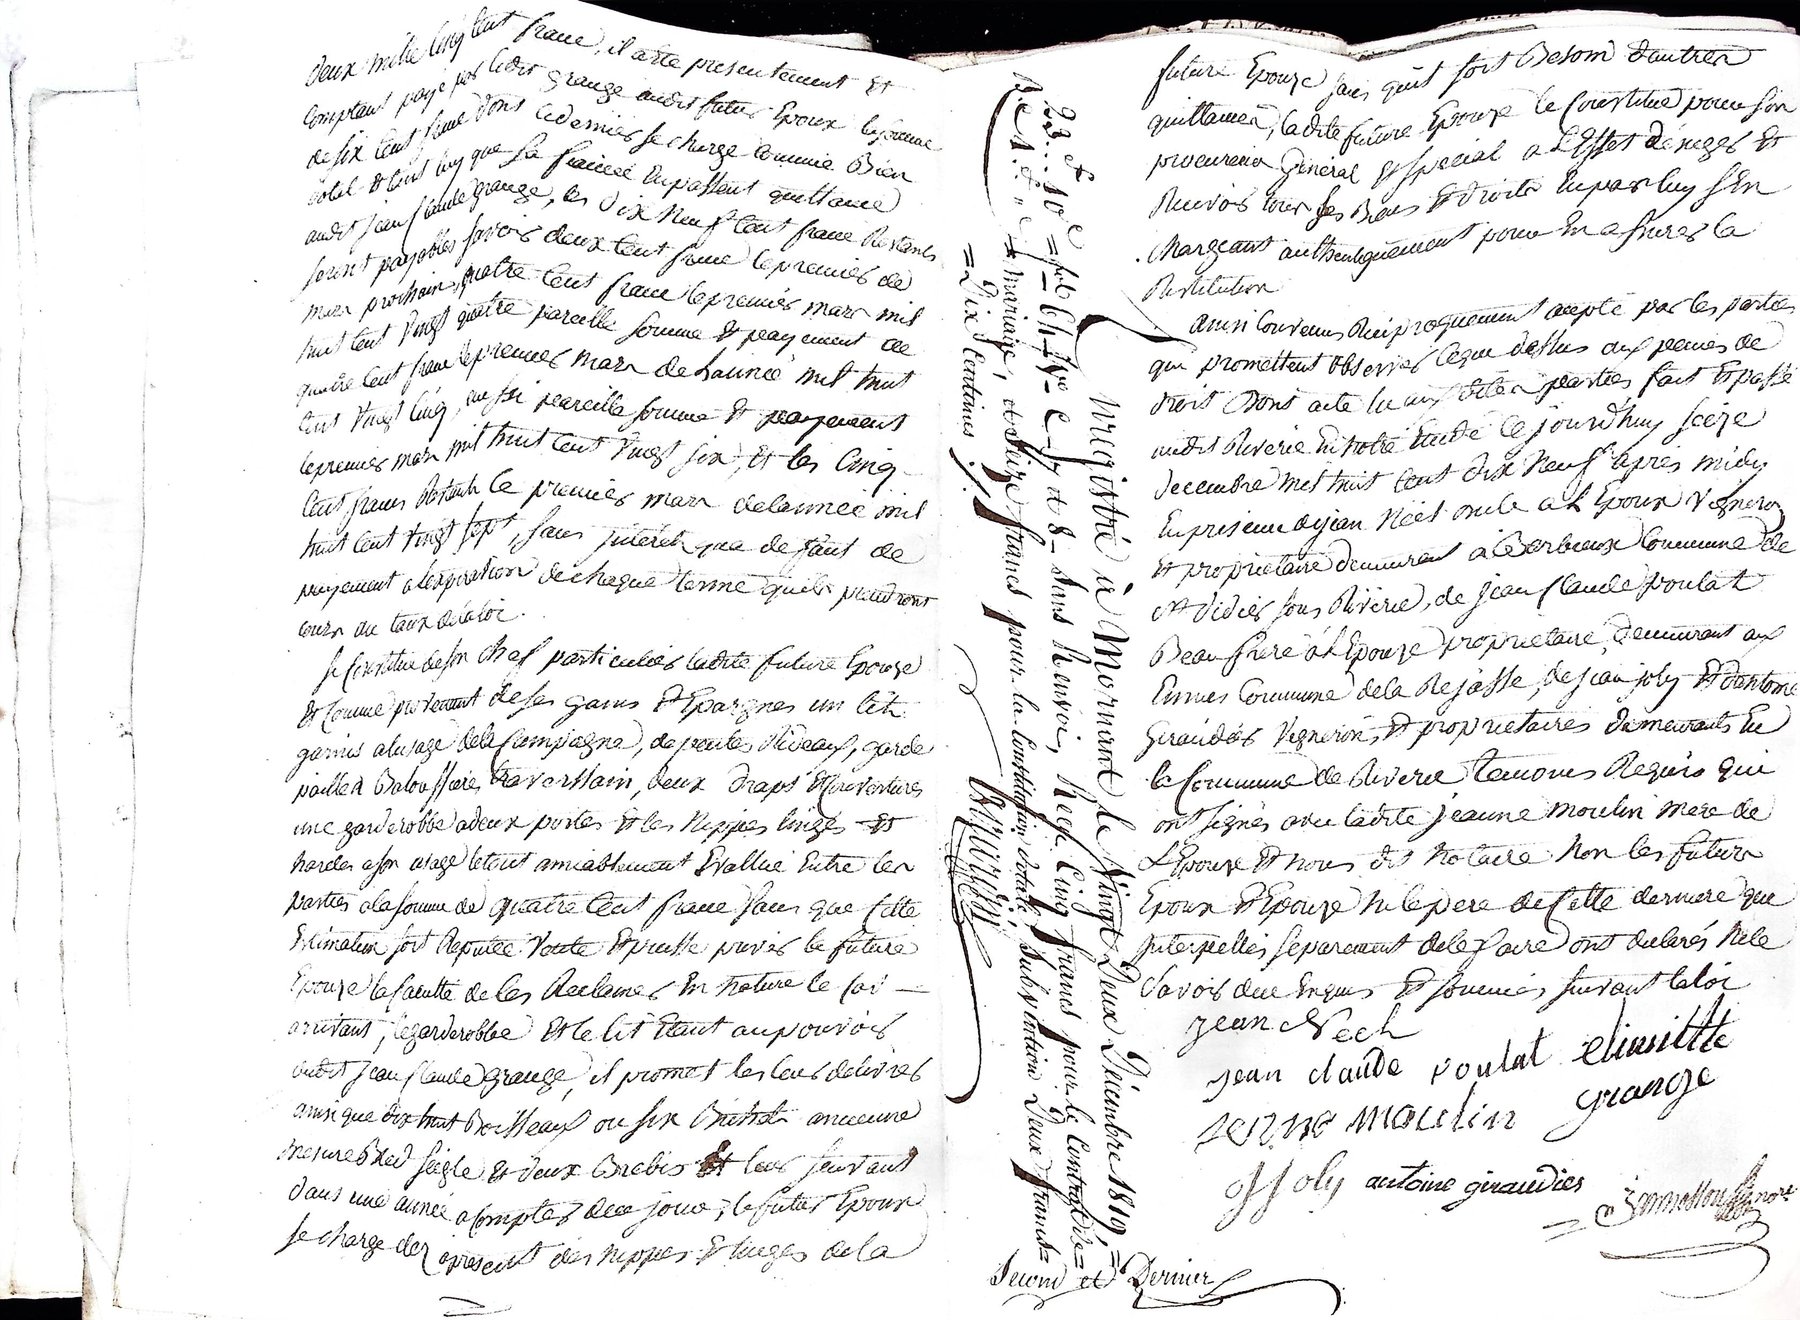 deux mille cinq cent franc, il a été presentement Et
comptant payé par ledit grange audit futur Epoux la somme
de six cent franc dont ce dernier se charge comme Bien
dotal & tant luy que sa fiancée En passent quittance
audit jean Claude grange, les dix Neuf cent franc Restants
seront payables savoir deux cent franc le premier de
mars prochain, quatre cent franc le premier mars mil
huit cent vingt quatre pareille somme & payement de
quatre cent franc le premier mars de Lannée mil huit
cent vingt cinq, aussi pareille somme & payement
le premier mars mil huit cent vingt six, Et les Cinq
Cent francs Restants le premier mars de lannée mil
huit cent vingt sept, sans intérêt qua defaut de
payement a lexpiration de chaque terme quils prendront
cours au taux de la loi.
se Constitue de son chef particulier ladite future Epouze
Et Comme provenant de ses gains & Epargnes un lit
garnis a lusage dela Campagne, de pentes Rideaux, garde
paille Baloussiere traverssain, deux draps & Couvertures
une garderobbe a deux portes & les Nippes linges &
hardes a son usage le tout amiablement Evallué Entre les
parties a la somme de quatre Cent franc sans que cette
Estimation soit Reputée Vente & puisse priver la future
Epouze la faculté de les Reclamer En nature le cas
arrivant, la garderobbe Et le lit Etant au pouvoir
dudit jean Claude grange, il promet les leur delivrer
ainsi que dix huit Boisseaux ou six Bichets ancienne
mesure Bled seigle & deux Brebis Et leur suivant
dans une année a Compter de ce jour, le futur Epoux
se charge des apresent des nippes & linges de la
23 et 10e = fol. 61 Vo C. 7 et 8 = sans Renvoi, Reçu Cinq francs pour le Contrat de
mariage, et seize francs pour la Constitution dotale, Subvention deux francs
= Dix Centimes
Enregistré à Mornant le Vingt Deux Décembre 1819,
Second et Dernier
future Epouze sans quil soit Besoin dautres
quittances, ladite future Epouze le Constitue pour son
procureur General & special a L'Effet d'Exiger &
Recevoir tous ses Biens & droits En par luy s'En
chargeant authentiquement pour En assurer la
Restitution
ainsi Convenu Reciproquement accepté par les parties
qui promettent observer ce que dessus aux peines de
droit dont acte lu aux dites parties fait & passé
audit Riverie En notre Etude Ce jourd'huy seize
decembre mil huit cent dix Neuf apres midy
En presence de jean Nech oncle a L'Epoux Vigneron
Et proprietaire demeurant a Berbieux Commune de
St didier sous Riverie, de jean Claude poulat
Beau frere a L'Epouze proprietaire, demeurant aux
Eimes Commune dela Rejasse, de jean joly & d'antoine
Giraudier Vignerons, & proprietaires demeurants En
la Commune de Riverie temoins Requis qui
ont signés avec ladite jeanne moulin mere de
L'Epouze & nous dit Notaire Non les futurs
Epoux & Epouze Ni le pere de Cette derniere que
interpellés separement de le faire ont declarés Ne le
savoir de ce Enquis & sommés suivant la loi
jean Nech
jean claude poulat
grange
jenne moulin
J Joly antoine giraudier